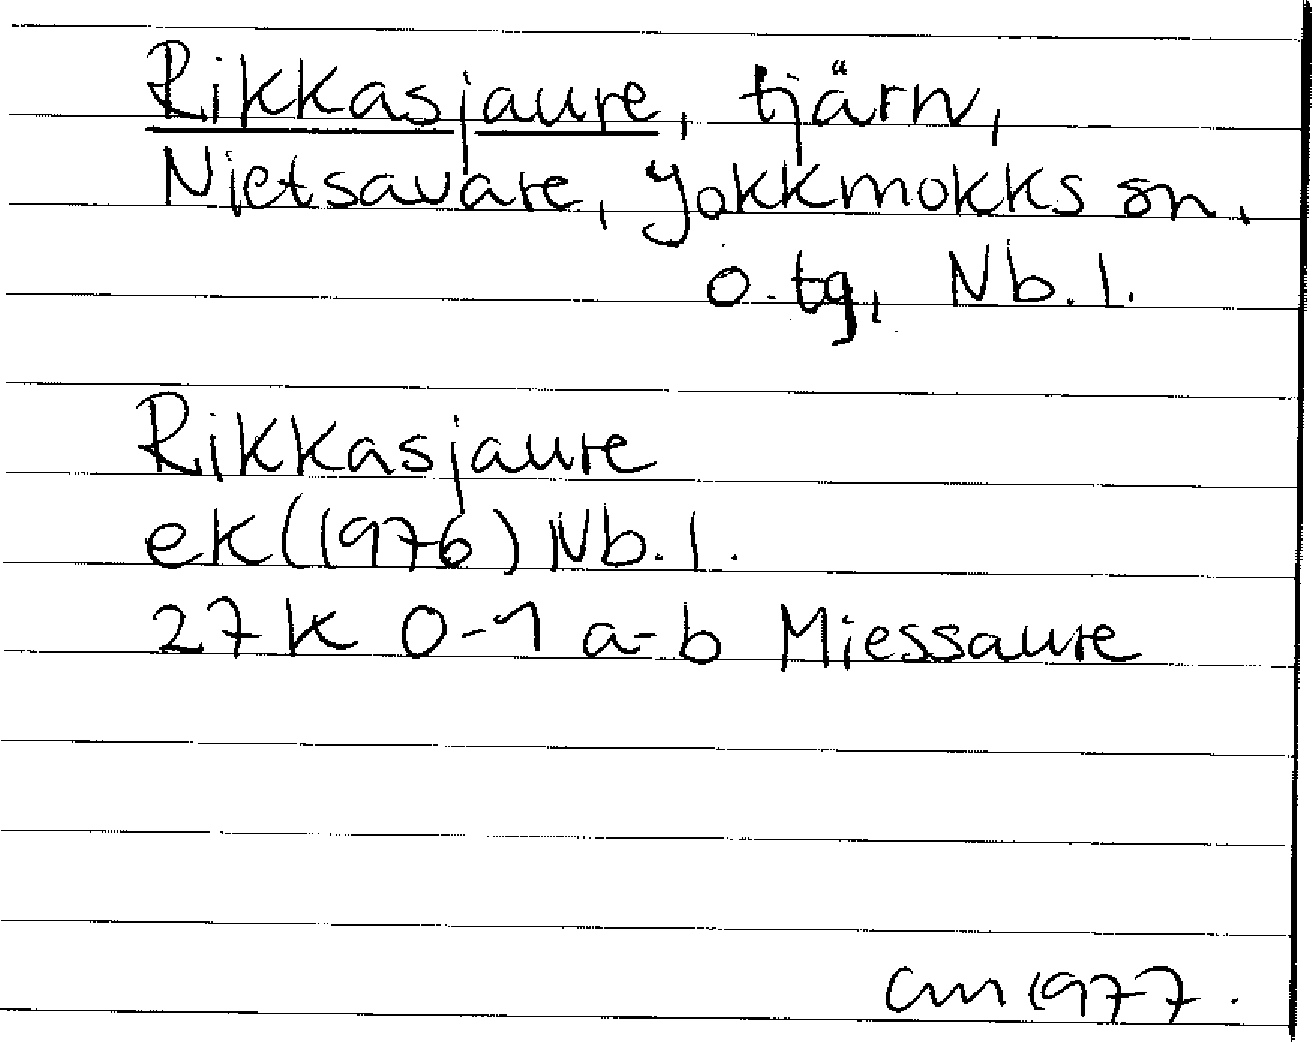 Rikkasjaure, tjärn,
Njetsavare, Jokkmokks sn.
o. tg, Nb. l.
Rikkasjaure
ek (1976) Nb. l.
27 K 0-1 a-b Miessaure
cm 1977.